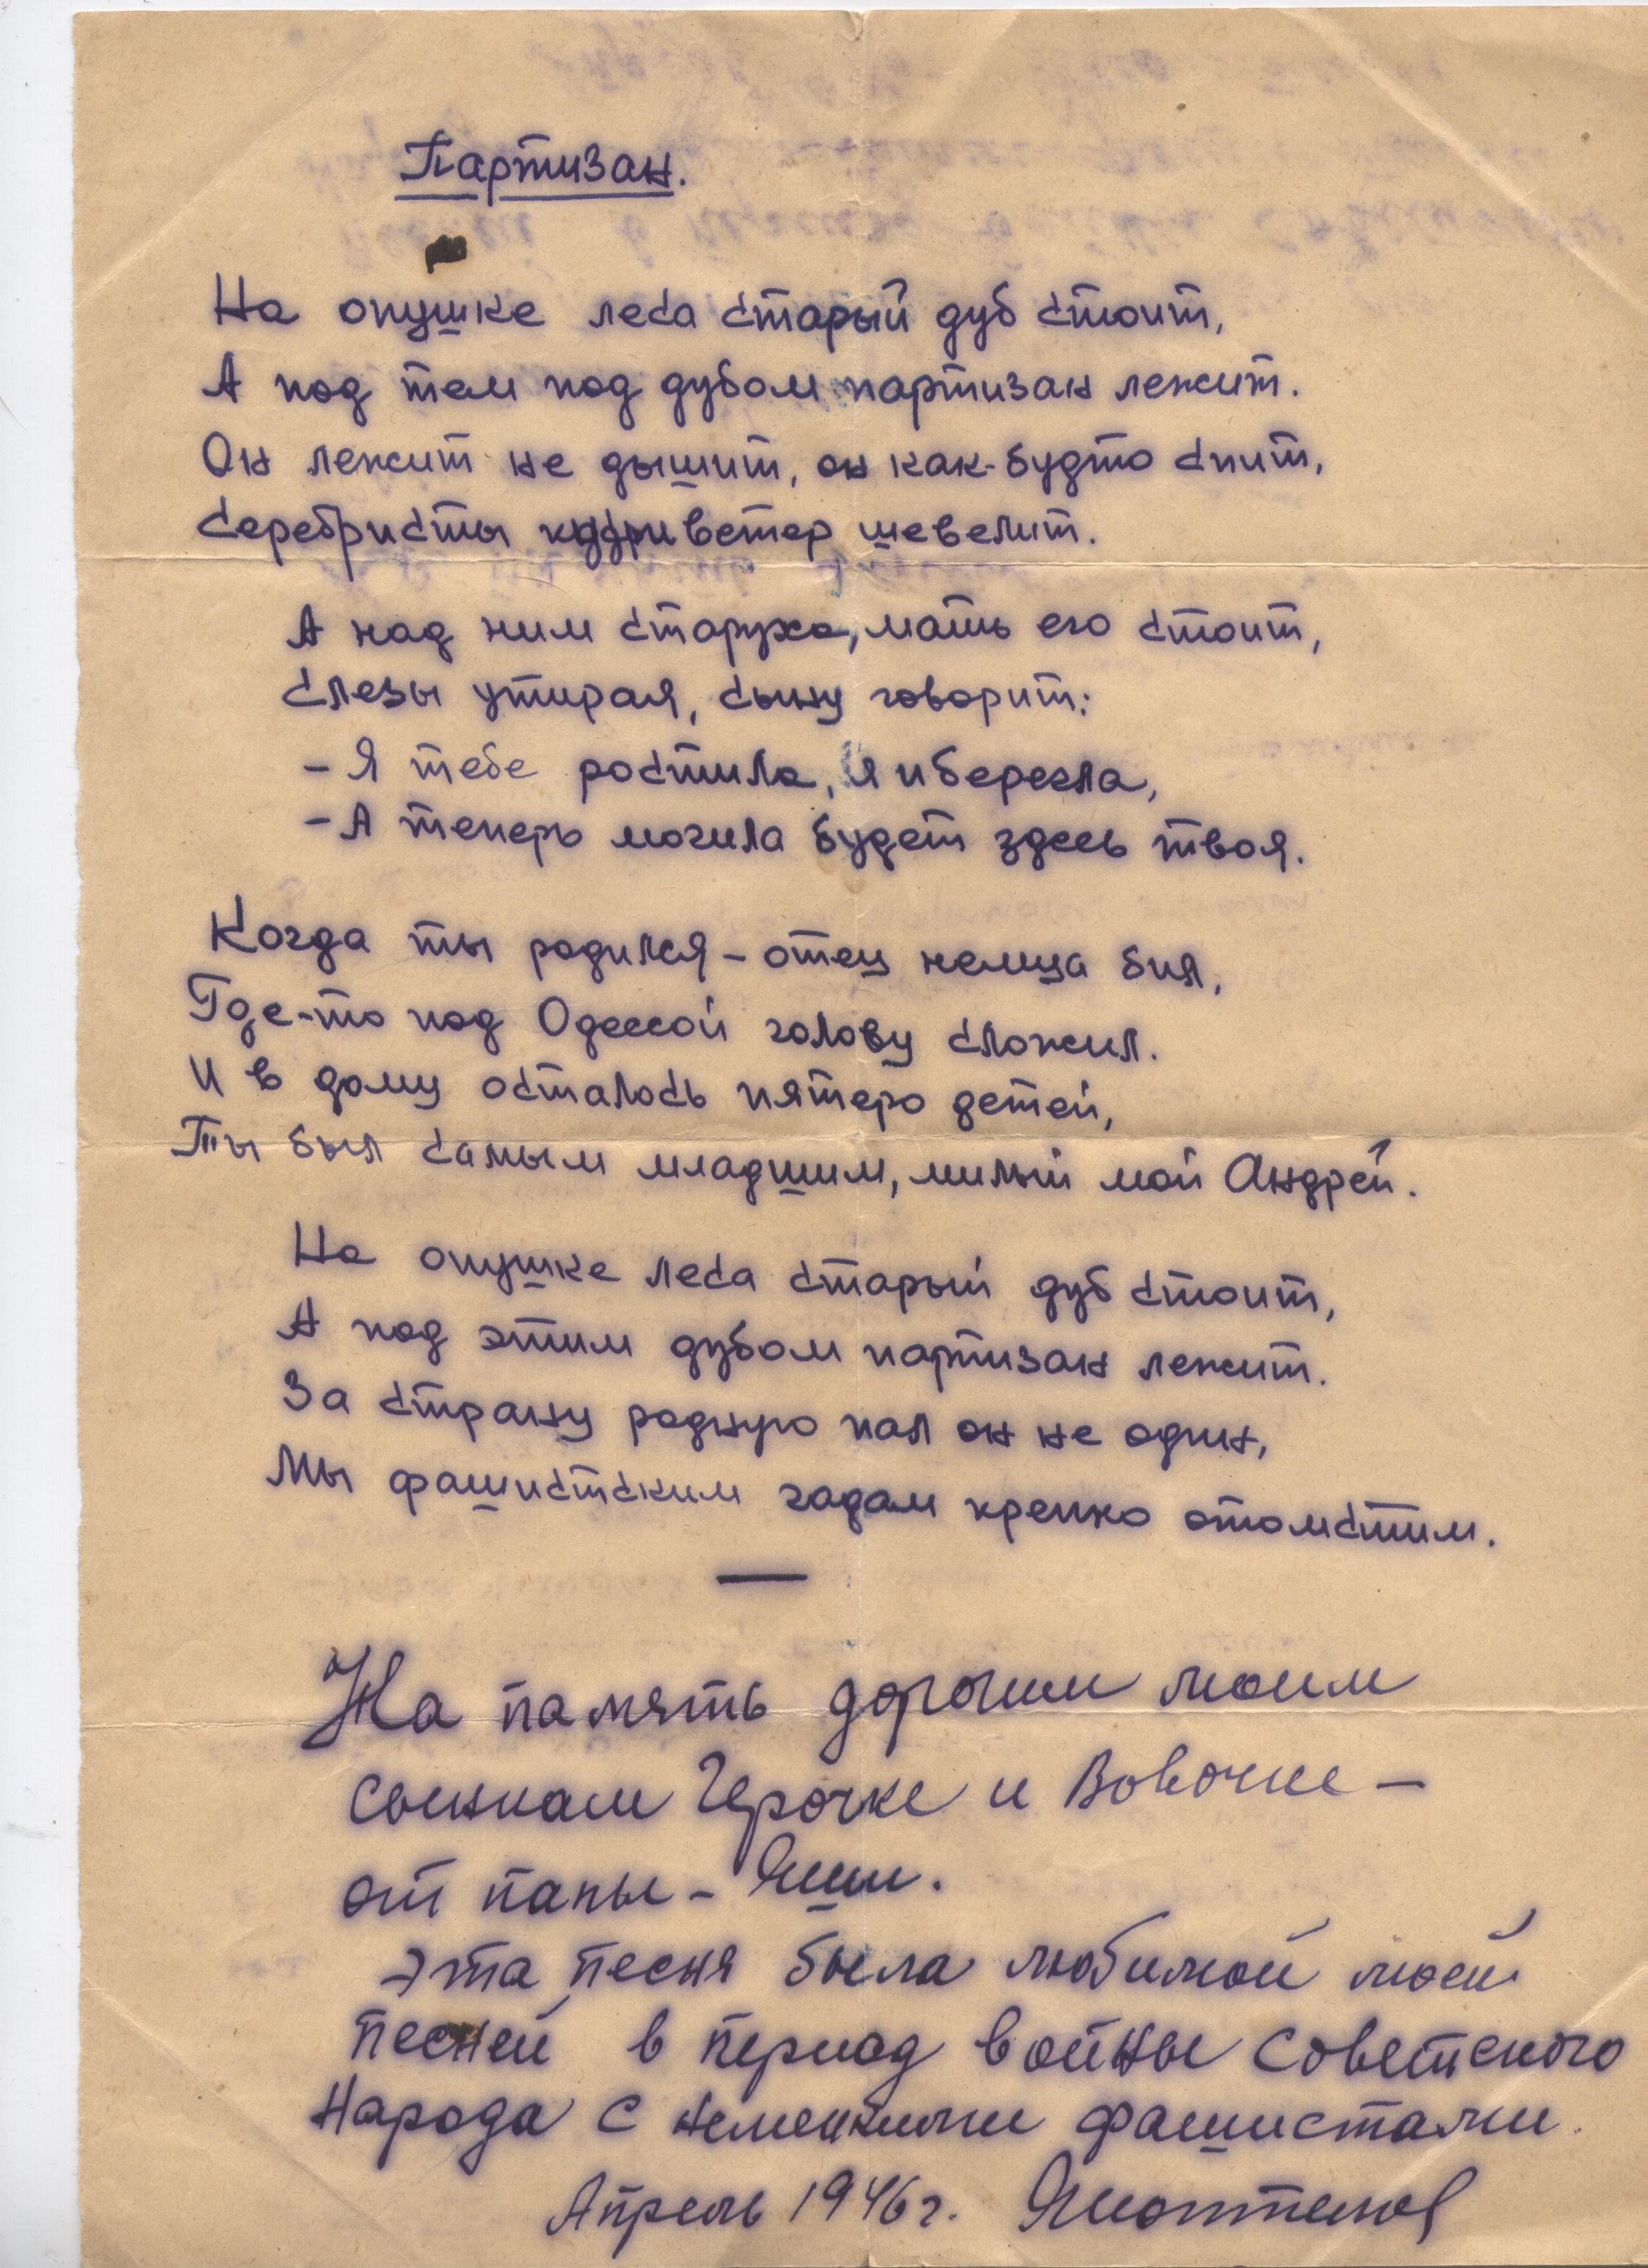 Партизан.
На опушке леса старый дуб стоит,
А под тем под дубом партизан лежит.
Он лежит не дышит, он как-будто спит,
Серебристы кудри ветер шевелит.
А над ним старуха, мать его стоит,
Слезы утирая, сыну говорит:
- Я тебе ростила, я и берегла,
- А теперь могила будет здесь твоя.
Когда ты родился - отец немца бил,
Где-то под Одессой голову сложил.
И в дому осталось пятеро детей,
Ты был самым младшим, милый мой Андрей.
На опушке леса старый дуб стоит,
А под этим дубом партизан лежит.
За страну родную пал он не один,
Мы фашистским гадам крепко отомстим.
На память дорогим моим
сынкам Герочке и Вовочке -
от папы - Яши.
Эта песня была любимой моей
песней в период войны Советского
Народа с немецкими фашистами.
Апрель 1946 г.